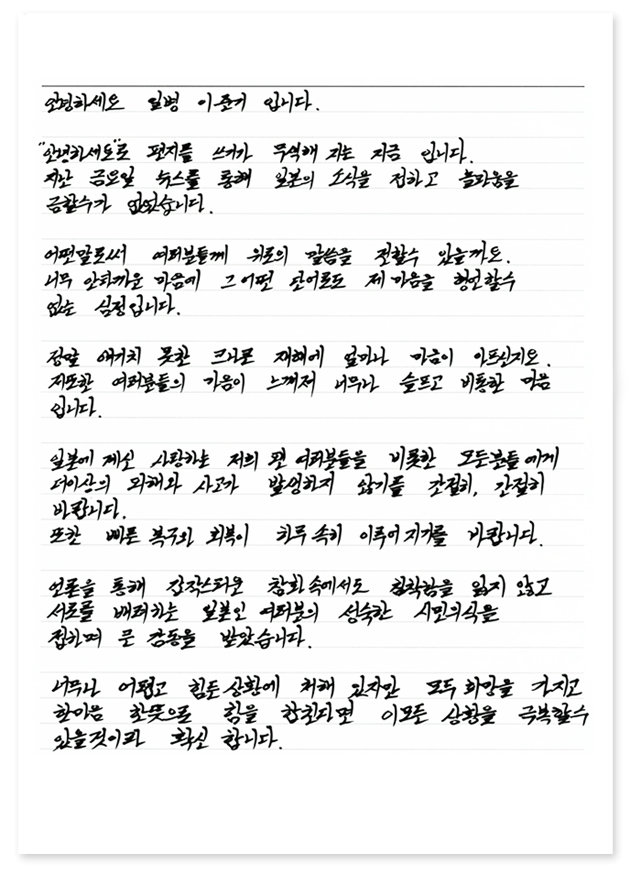 안녕하세요 일병 이준기 입니다.
"안녕하세요"로 편지를 쓰기가 무색해 지는 지금 입니다.
지난 금요일 뉴스를 통해 일본의 소식을 접하고 놀라움을
금할수가 없었습니다.
어떤말로써 여러분들께 위로의 말씀을 전할수 있을까요.
너무 안타까운 마음에 그어떤 단어로도 제 마음을 형언할수
없는 심정입니다.
정말 예기치 못한 크나큰 재해에 얼마나 마음이 아프신지요.
저또한 여러분들의 마음이 느껴져 너무나 슬프고 비통한 마음
입니다.
일본에 계신 사랑하는 저희 팬 여러분들을 비롯한 모든분들 에게
더이상의 피해와 사고가 발생하지 않기를 간절히, 간절히
바랍니다.
또한 빠른 복구와 회복이 하루 속히 이루어 지기를 바랍니다.
언론을 통해 갑작스러운 참화 속에서도 침착함을 잃지 않고
서로를 배려하는 일본인 여러분의 성숙한 시민의식을
접하며 큰 감동을 받았습니다.
너무나 어렵고 힘든 상황에 처해 있지만 모두 희망을 가지고
한마음 한뜻으로 힘을 합친다면 이모든 상황을 극복할수
있을것이라 확신 합니다.